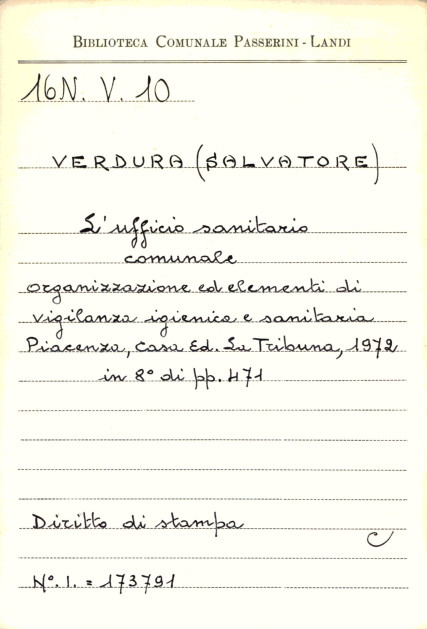 BIBLIOTECA COMUNALE PASSERINI - LANDI
16N. V. 10
VERDURA (SALVATORE)
L'ufficio sanitario
comunale
organizzazione ed elementi di
vigilanza igienica e sanitaria
Piacenza, Casa Ed. La Tribuna, 1972
in 8° di pp. 471
Diritto di stampa
C
N°. I. = 173791